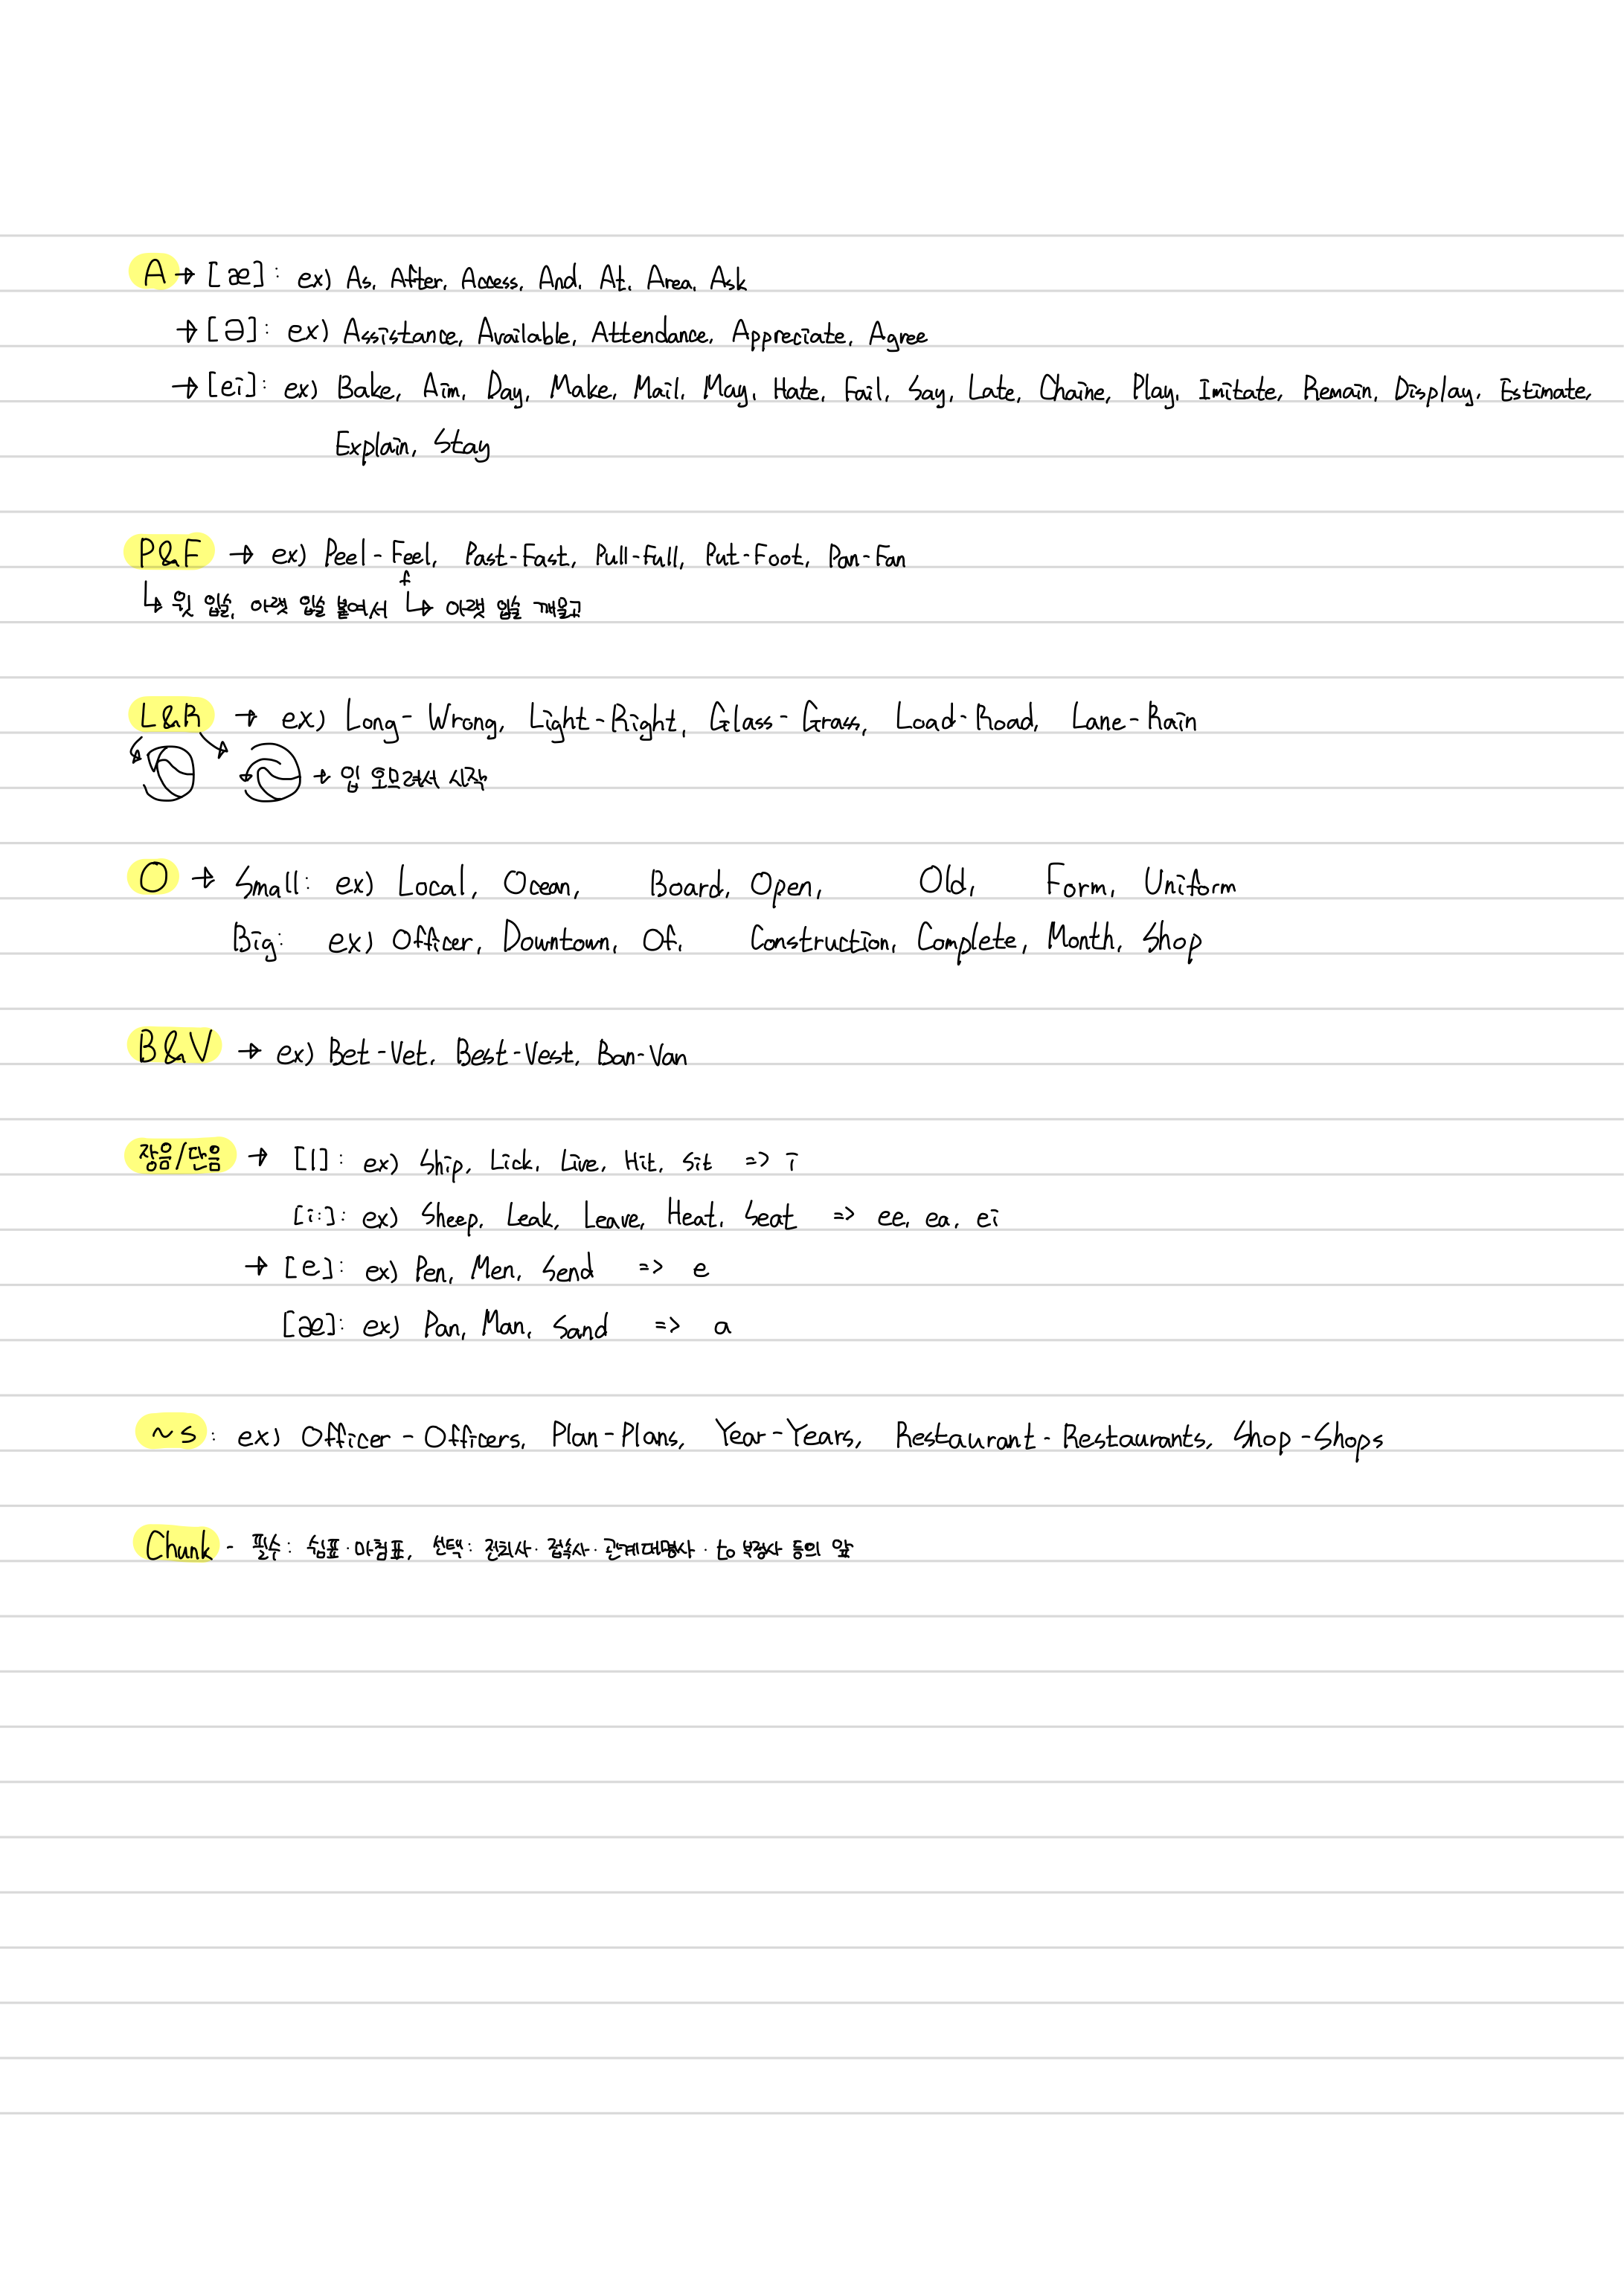 A → [æ] : ex) As, After, Access, And, At, Area, Ask
→ [ə] : ex) Assistance, Available, Attendance, Appreciate, Agree
→ [ei] : ex) Bake, Aim, Day, Make, Mail, May, Hate, Fail, Say, Late, Chaine, Play, Imitate, Remain, Display, Estimate,
Explain, Stay
P&F → ex) Peel-Feel, Past-Fast, Pull-Full, Put-Foot, Pan-Fan
f
↳ 윗 입술, 아랫 입술 붙여서 ↳ 아랫 입술 깨물고
L&R → ex) Long-Wrong, Light-Right, Glass-Grass, Load-Road, Lane-Rain
→ 입 오므려서 시작
O → Small: ex) Local, Ocean, Board, Open, Old, Form, Uniform
Big: ex) Officer, Downtown, Of, Construction, Complete, Month, Shop
B&V → ex) Bet-Vet, Best-Vest, Ban-Van
장음/단음 → [I] : ex) Ship, Lick, Live, Hit, Sit => i
[i:] : ex) Sheep, Leak, Leave, Heat, Seat => ee, ea, ei
→ [e] : ex) Pen, Men, Send => e
[æ] : ex) Pan, Man, Sand => a
~s : ex) Officer-Officers, Plan-Plans, Year-Years, Restaurant-Restaurants, Shop-Shops
Chunk - 필수: 쉼표·마침표, 선택: 전치사·접속사·관계대명사·to 부정사 등의 앞